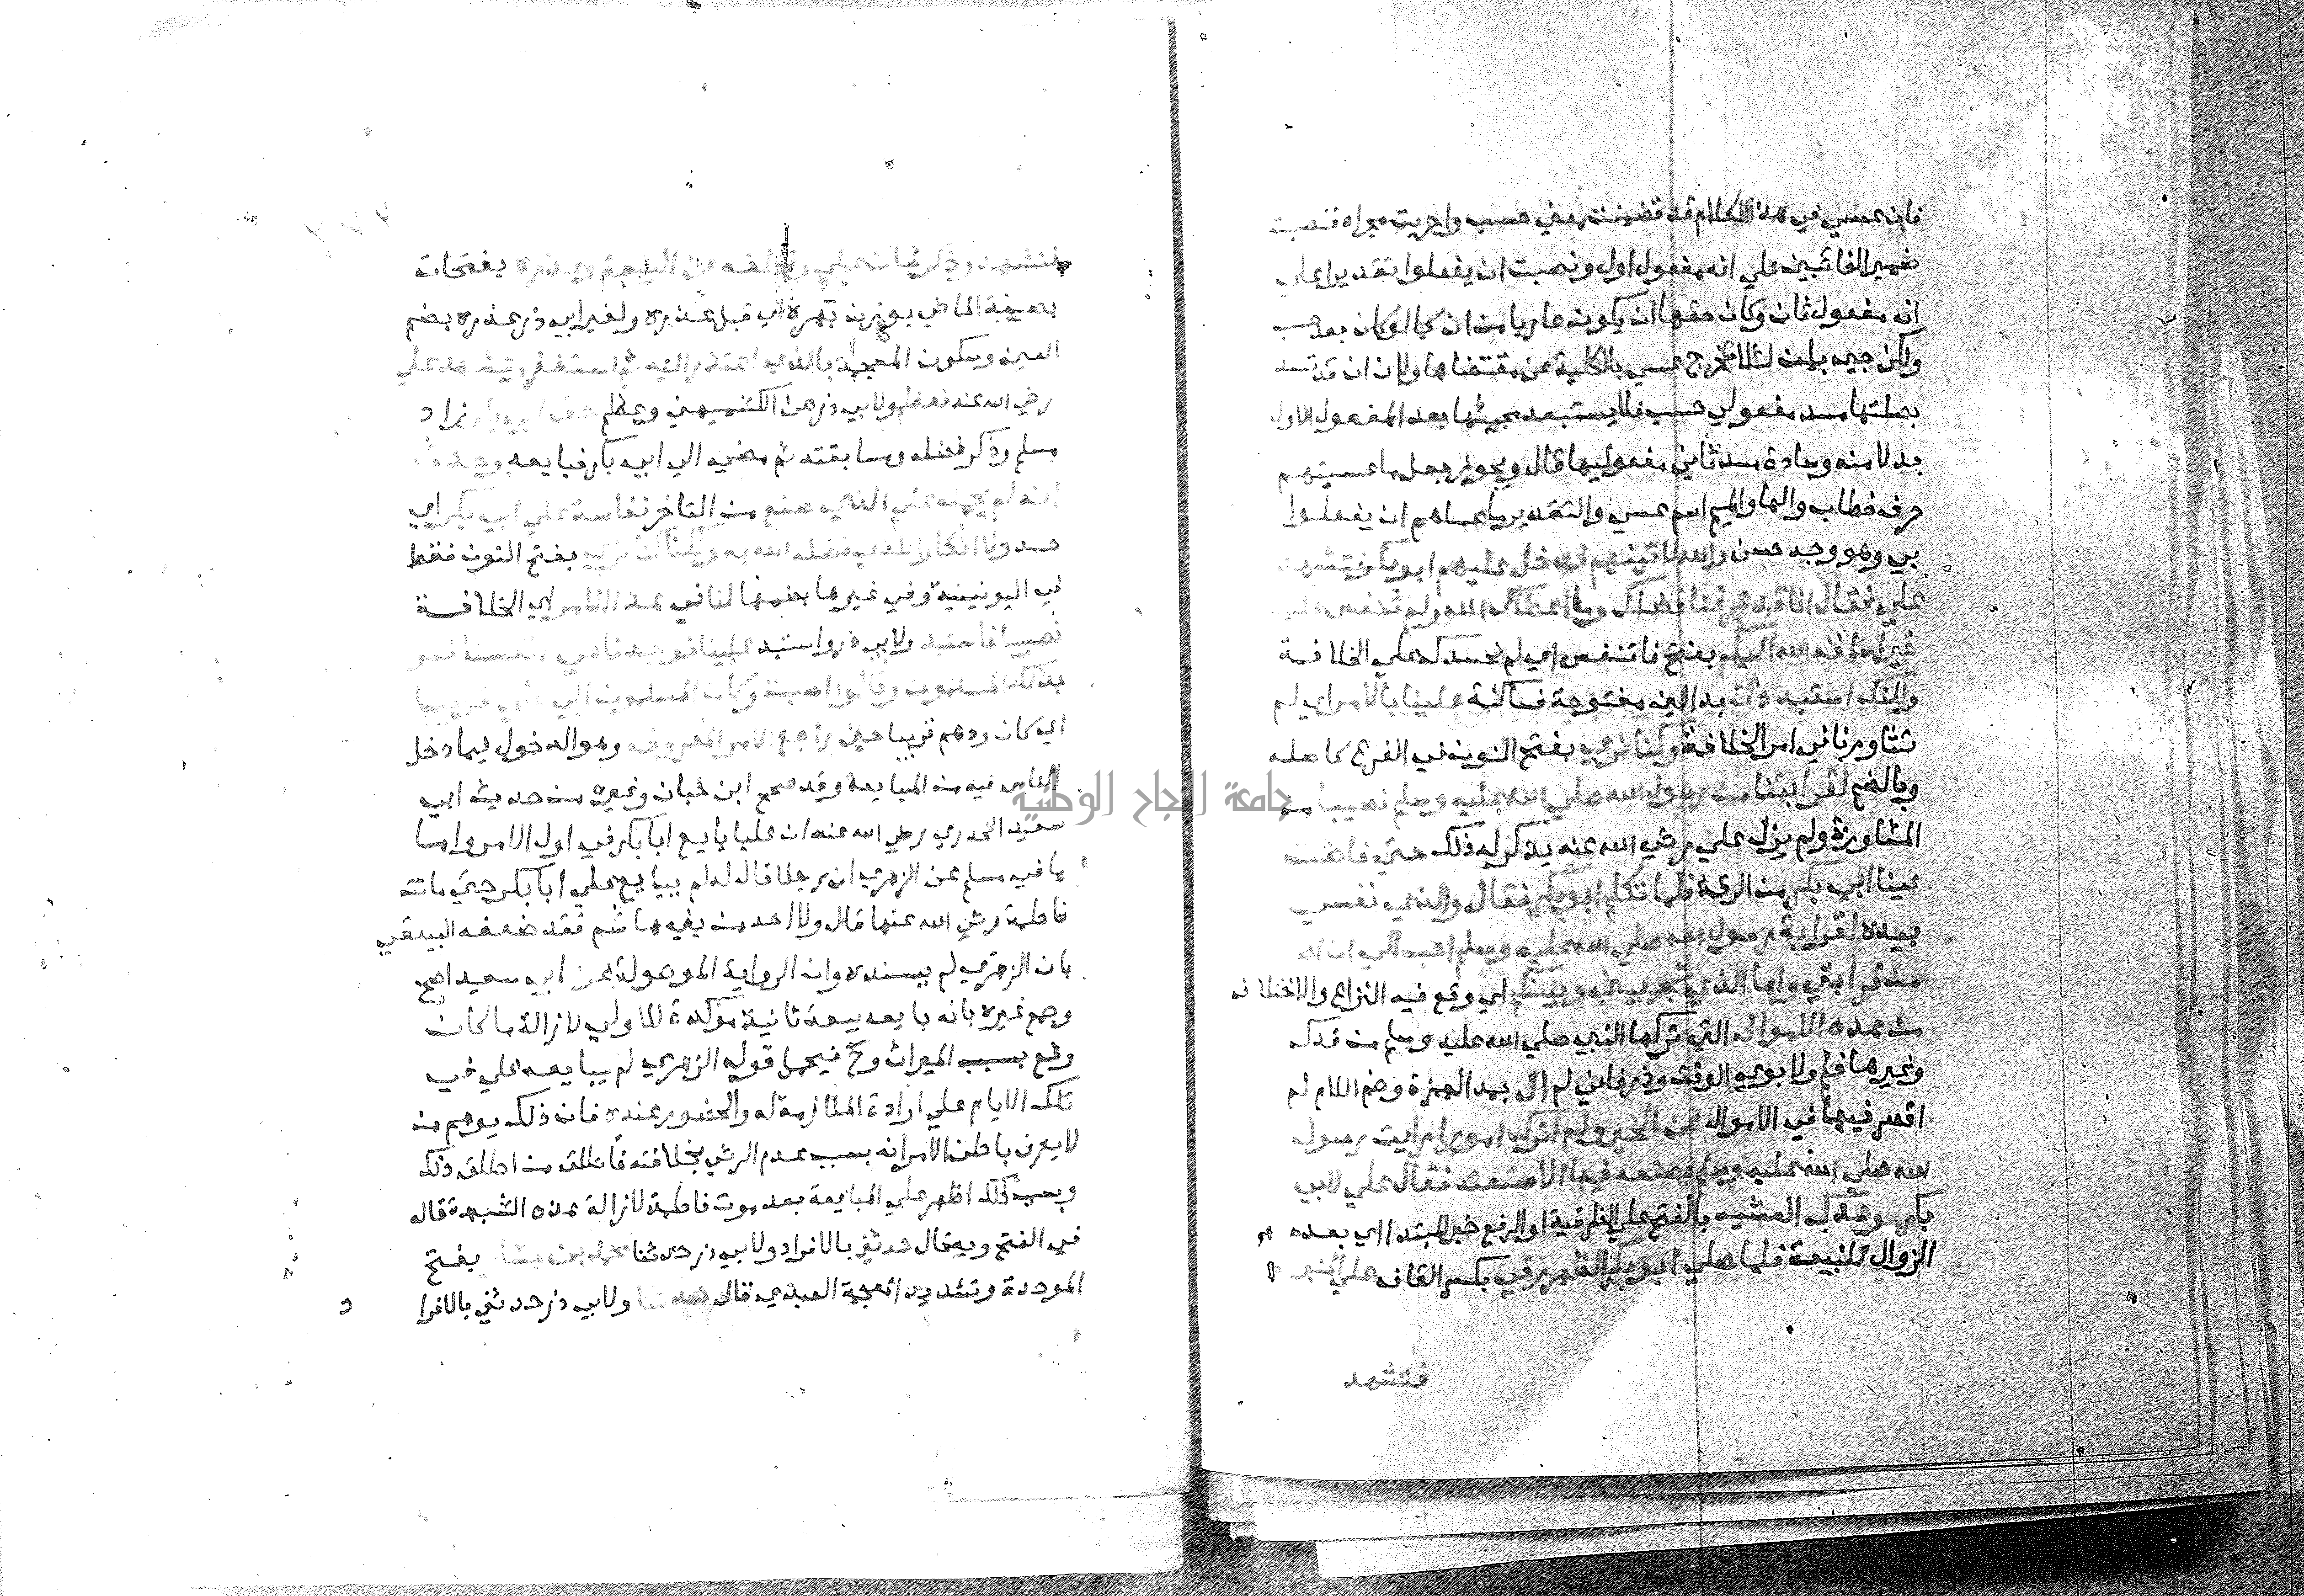 فان عسى في هذا الكلام قد تضمنت معنى حسب واجريت مجراه فنصبت
ضمير الغائبين علي انه مفعول اول ونصبت ان يفعلوا تقديرا علي
انه مفعول ثان وكان حقها ان يكون عاريا من ان كما لو كان بعد حسب
ولكن جيء بان لئلا تخرج عسي بالكلية عن مقتضاها ولان ان قد تسد
بصلتها مسد مفعولي حسب فلا يستبعد مجيئها بعد المفعول الاول
بدلا منه وسادة مسد ثاني مفعوليها قال ويجوز جعل ما عسيتهم
حرف خطاب والها والميم اسم عسي والتقدير ما عساهم ان يفعلوا
بي وهو وجه حسن والله لاتينهم فدخل عليهم ابو بكر فتشهد
علي فقال انا قد عرفنا فضلك وما اعطاك الله ولم ننفس عليك
خيرا ساقه الله اليك بفتح فا ننفس اي لم نحسدك علي الخلافة
ولكنك استبددت بدالين مفتوحة فساكنة علينا بالامر اي لم
تشاورنا في امر الخلافة وكنا نري بفتح النون في الفرع كاصله
وبالضم لقرابتنا من رسول الله صلي الله عليه وسلم نصيبا من
المشاورة ولم يزل علي رضي الله عنه يذكر له ذلك حتي فاضت
عينا ابي بكر من الرقة فلما تكلم ابو بكر فقال والذي نفسي
بيده لقرابة رسول الله صلي الله عليه وسلم احب الي ان اصل
من قرابتي واما الذي شجر بيني وبينكم اي وقع فيه النزاع والاختلاف
من هذه الاموال التي تركها النبي صلي الله عليه وسلم من فدك
وغيرها فلم ولابوي الوقت وذر فاني لم ال بمد الهمزة وضم اللام لم
اقصر فيها في الاموال عن الخير ولم اترك امرا رايت رسول
الله صلي الله عليه وسلم يصنعه فيها الا صنعته فقال علي لابي
بكر موعدك العشيه بالفتح علي الظرفية او الرفع خبر المبتدا اي بعده
الزوال للبيعة فلما صلي ابو بكر الظهر رقي بكسر القاف علي المنبر
فتشهد
فتشهد وذكر شان علي وتخلفه عن البيعة وعذره بفتحات
بصيغة الماضي بوزن تهره اي قبل عذره ولغير ابي ذر عذره بضم
العين وسكون المعجمة بالذي اعتذر اليه ثم استغفر وتشهد علي
رضي الله عنه فعظم ولابي ذر عن الكشميهني وعظم حق ابي بكر زاد
مسلم وذكر فضله وسابقته ثم مضي الي ابي بكر فبايعه وحدث
انه لم يحمله علي الذي صنع من التاخر نفاسة علي ابي بكر اي
حسد ولا انكارا للذي فضله الله به ولكنا كنا نري بفتح النون فقط
في اليونينية وفي غيرها بضمها لنا في هذا الامر اي الخلافة
نصيبا فاستبد ولابي ذر واستبد علينا فوجدنا في انفسنا فسر
بذلك المسلمون وقالوا اصبت وكان المسلمون الي علي قريبا
اي كان ودهم قريبا حين راجع الامر المعروف وهو الدخول فيما دخل
الناس فيه من المبايعة وقد صحح ابن حبان وغيره من حديث ابي
سعيد الخدري رضي الله عنه ان عليا بايع ابا بكر في اول الامر واما
ما في مسلم عن الزهري ان رجلا قال له لم يبايع علي ابا بكر حتي ماتت
فاطمة رضي الله عنها قال ولا احد من بني هاشم فقد ضعفه البيهقي
بان الزهري لم يسنده وان الرواية الموصولة عن ابي سعيد اصح
وجمع غيره بانه بايعه بيعة ثانية موكدة للاولي لازالة ما كان
وقع بسبب الميراث وح فيحمل قول الزهري لم يبايعه علي في
تلك الايام علي ارادة الملازمة له والحضور عنده فان ذلك يوهم من
لا يعرف باطن الامر انه بسبب عدم الرضي بخلافته فاطلق من اطلق ذلك
وبسبب ذلك اظهر علي المبايعة بعد موت فاطمة لازالة هذه الشبهة قاله
في الفتح وبه قال حدثني بالافراد ولابي ذر حدثنا محمد بن بشار بفتح
الموحدة وتشديد المعجمة العبدي قال حدثنا ولابي ذر حدثني بالافرا
د
جامعة النجاح الوطنية